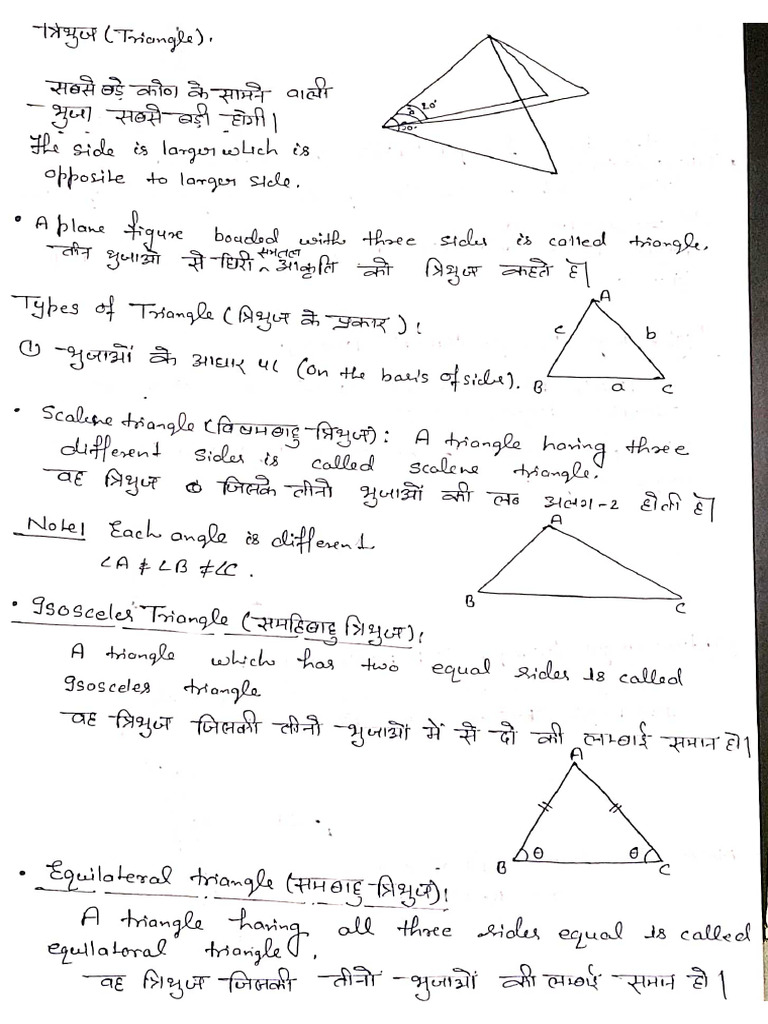 त्रिभुज (Triangle).
सबसे बड़े कोण के सामने वाली
भुजा सबसे बड़ी होगी|
The side is larger which is
opposite to larger side.
20°
• A plane figure bouded with three sides is called triangle.
तीन भुजाओं से घिरी समतल आकृति को त्रिभुज कहते है|
Types of Triangle (त्रिभुज के प्रकार):
① भुजाओं के आधार पर (On the basis of side).
A
c
b
B
a
C
• Scalene triangle (विषमबाहु त्रिभुज): A triangle having three
different sides is called scalene triangle.
वह त्रिभुज जिसके तीनो भुजाओं की लब अलग-2 होती है|
Note| Each angle is different
∠A ≠ ∠B ≠ ∠C.
A
B
C
• Isosceles Triangle (समद्विबाहु त्रिभुज):
A triangle which has two equal sides is called
Isosceles triangle
वह त्रिभुज जिसकी तीनो भुजाओं में से दो की लम्बाई समान हो|
A
B
θ
θ
C
• Equilateral triangle (समबाहु त्रिभुज):
A triangle having all three sides equal is called
equilatoral triangle.
वह त्रिभुज जिसकी तीनो भुजाओं की लम्बाई समान हो|